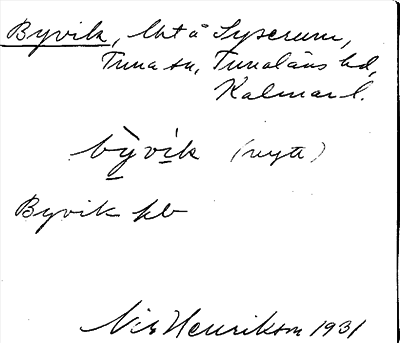 Byvik, lht å Syserum,
Tuna sn, Tunaläns hd,
Kalmar l.
bỳvik (nytt)
Byvik jb
Nils Henrikson 1931